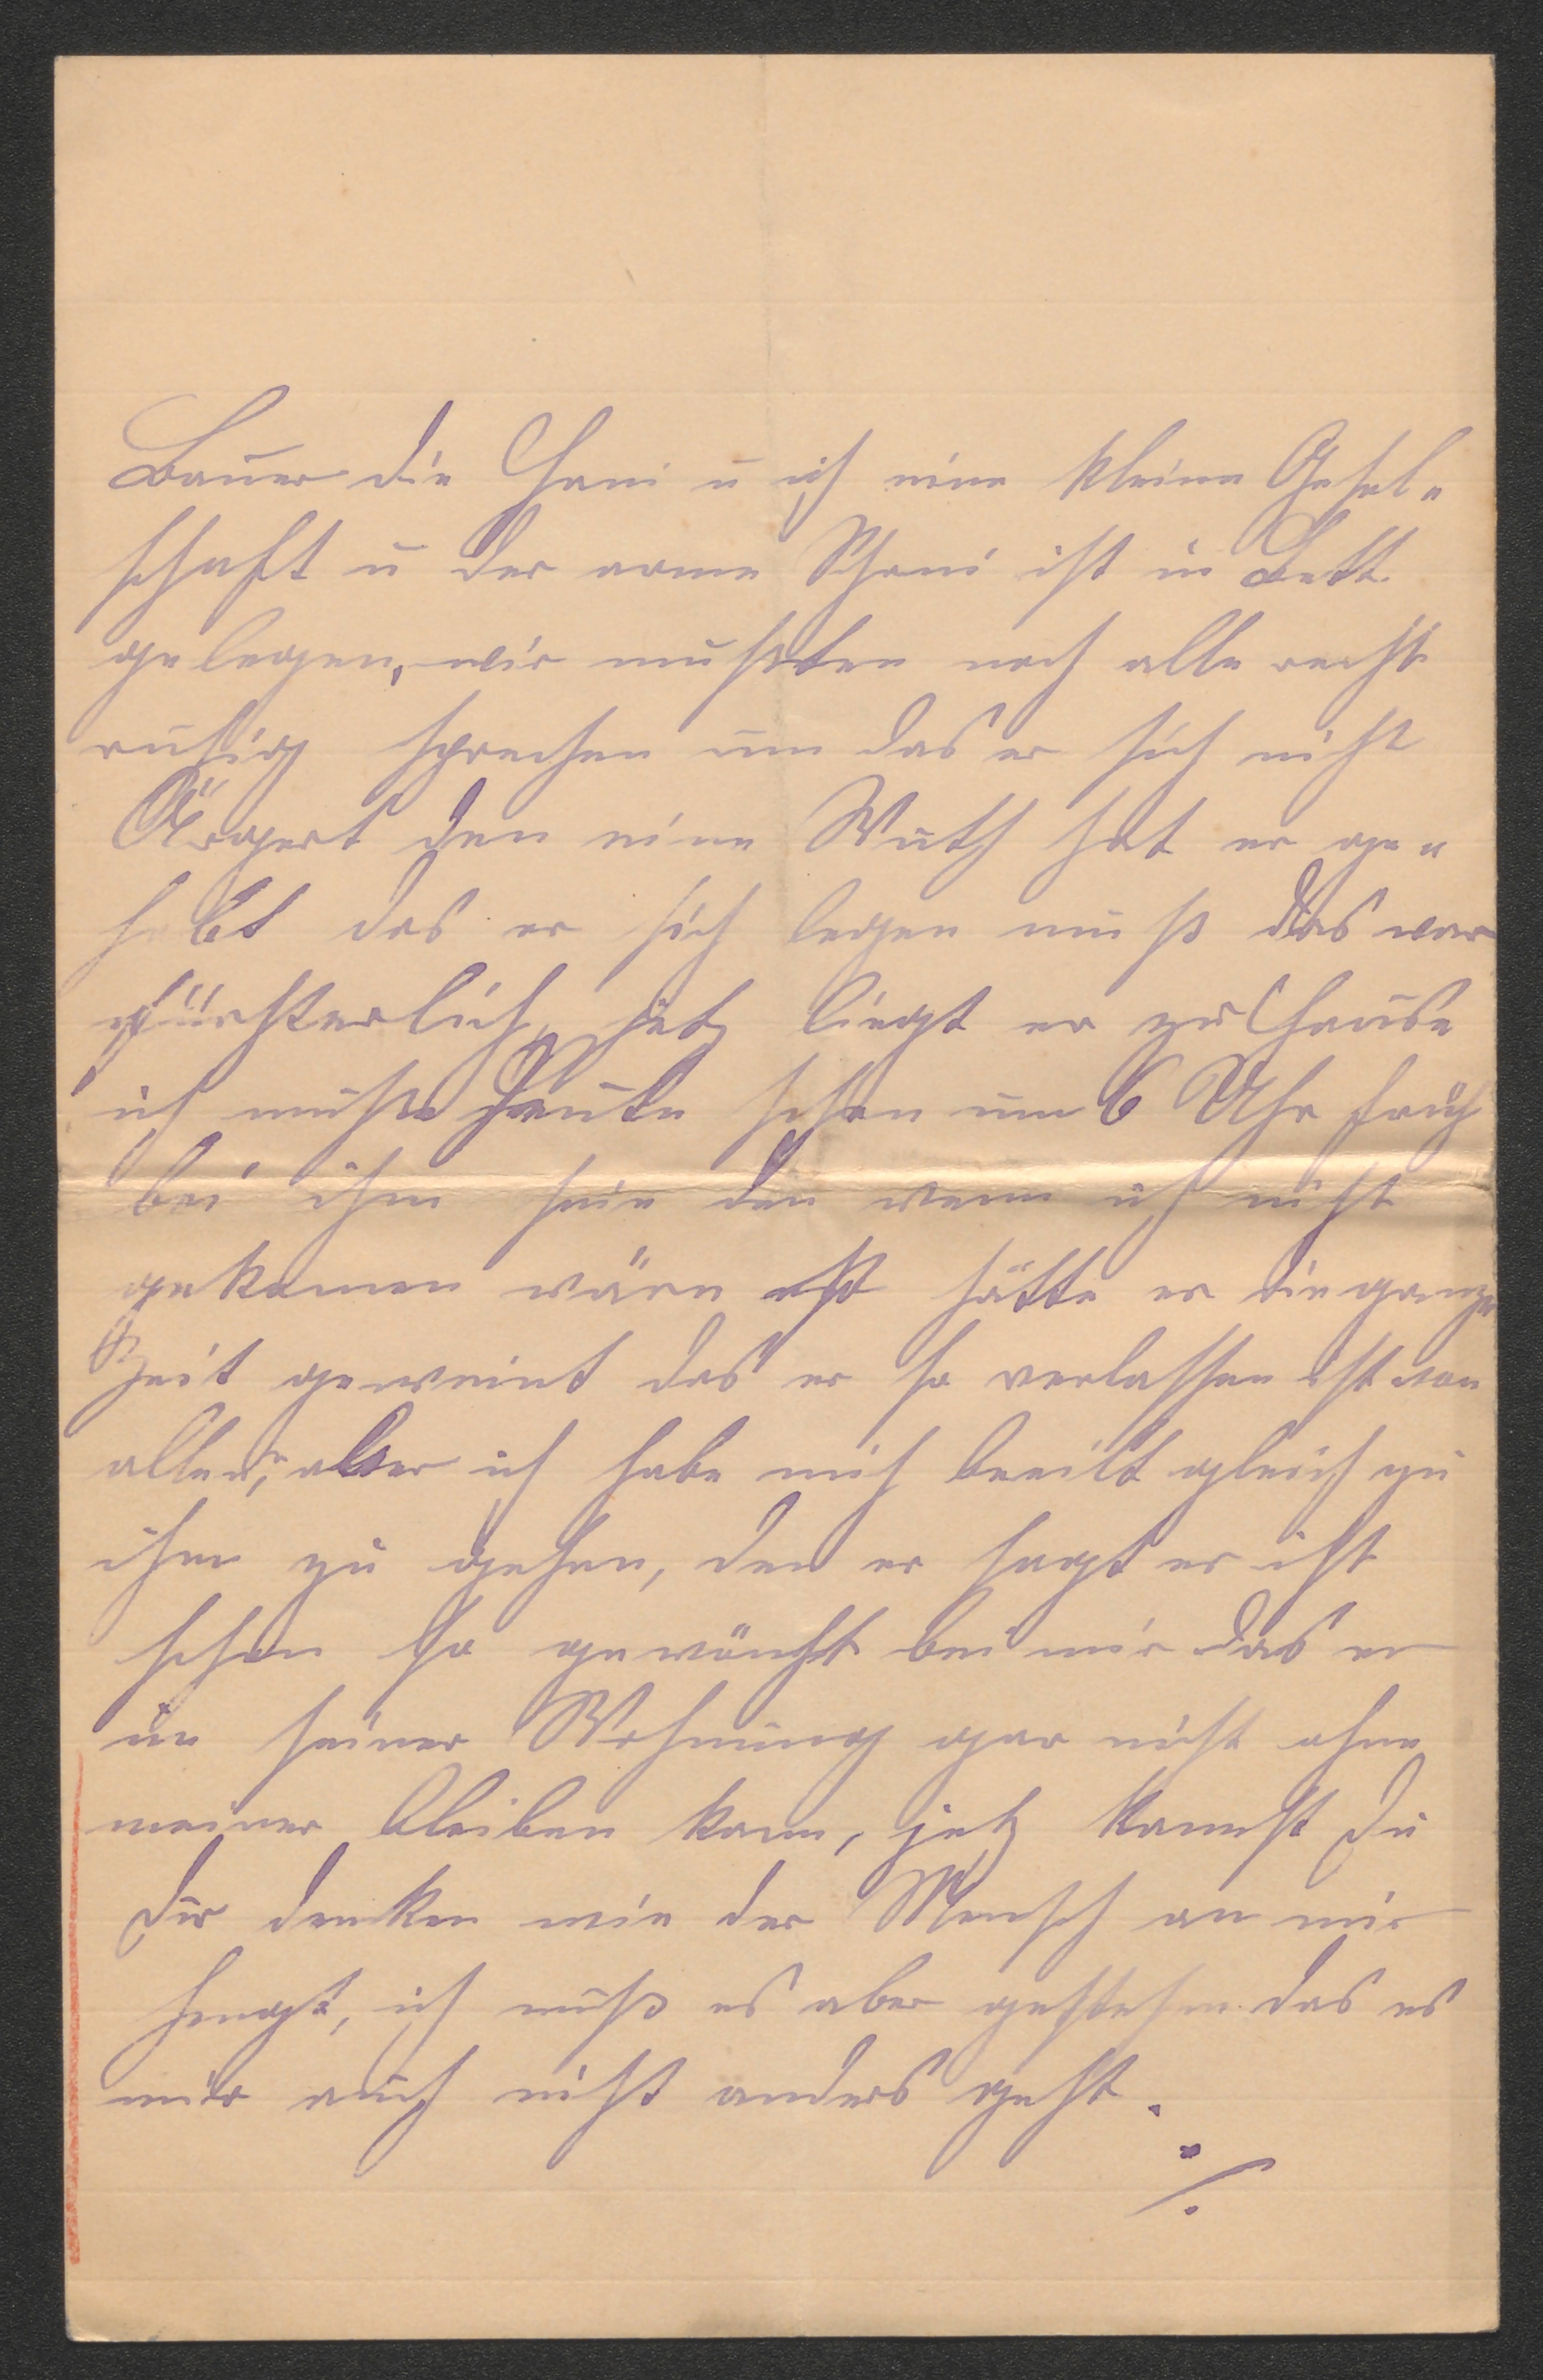 Bauer die Hani u ich eine kleine Gesel„
schaft u der arme Schani ist in Bett
gelegen, wir mußten noch alle recht
ruhig sprechen um das er sich nicht
Ärgert den eine Wuth hat er ge„
habt das er sich legen muß das war
fürchterlich, jetz liegt er zu Hause
ich mußte Heute schon um 6 Uhr früh
bei ihm sein den wenn ich nicht
gekomen wäre so hätte er die ganze
Zeit geweint das er so verlassen ist von
allen, aber ich habe mich beeilt gleich zu
ihm zu gehen, den er sagt er ist
schon so gewöhnt bei mir das er
in seiner Wohnung gar nicht ohne
meiner bleiben kann, jetz kannst Du
Dir denken wie der Mensch an mir
hengt, ich muß es aber gestehen das es
mir auch nicht anders geht.
./.